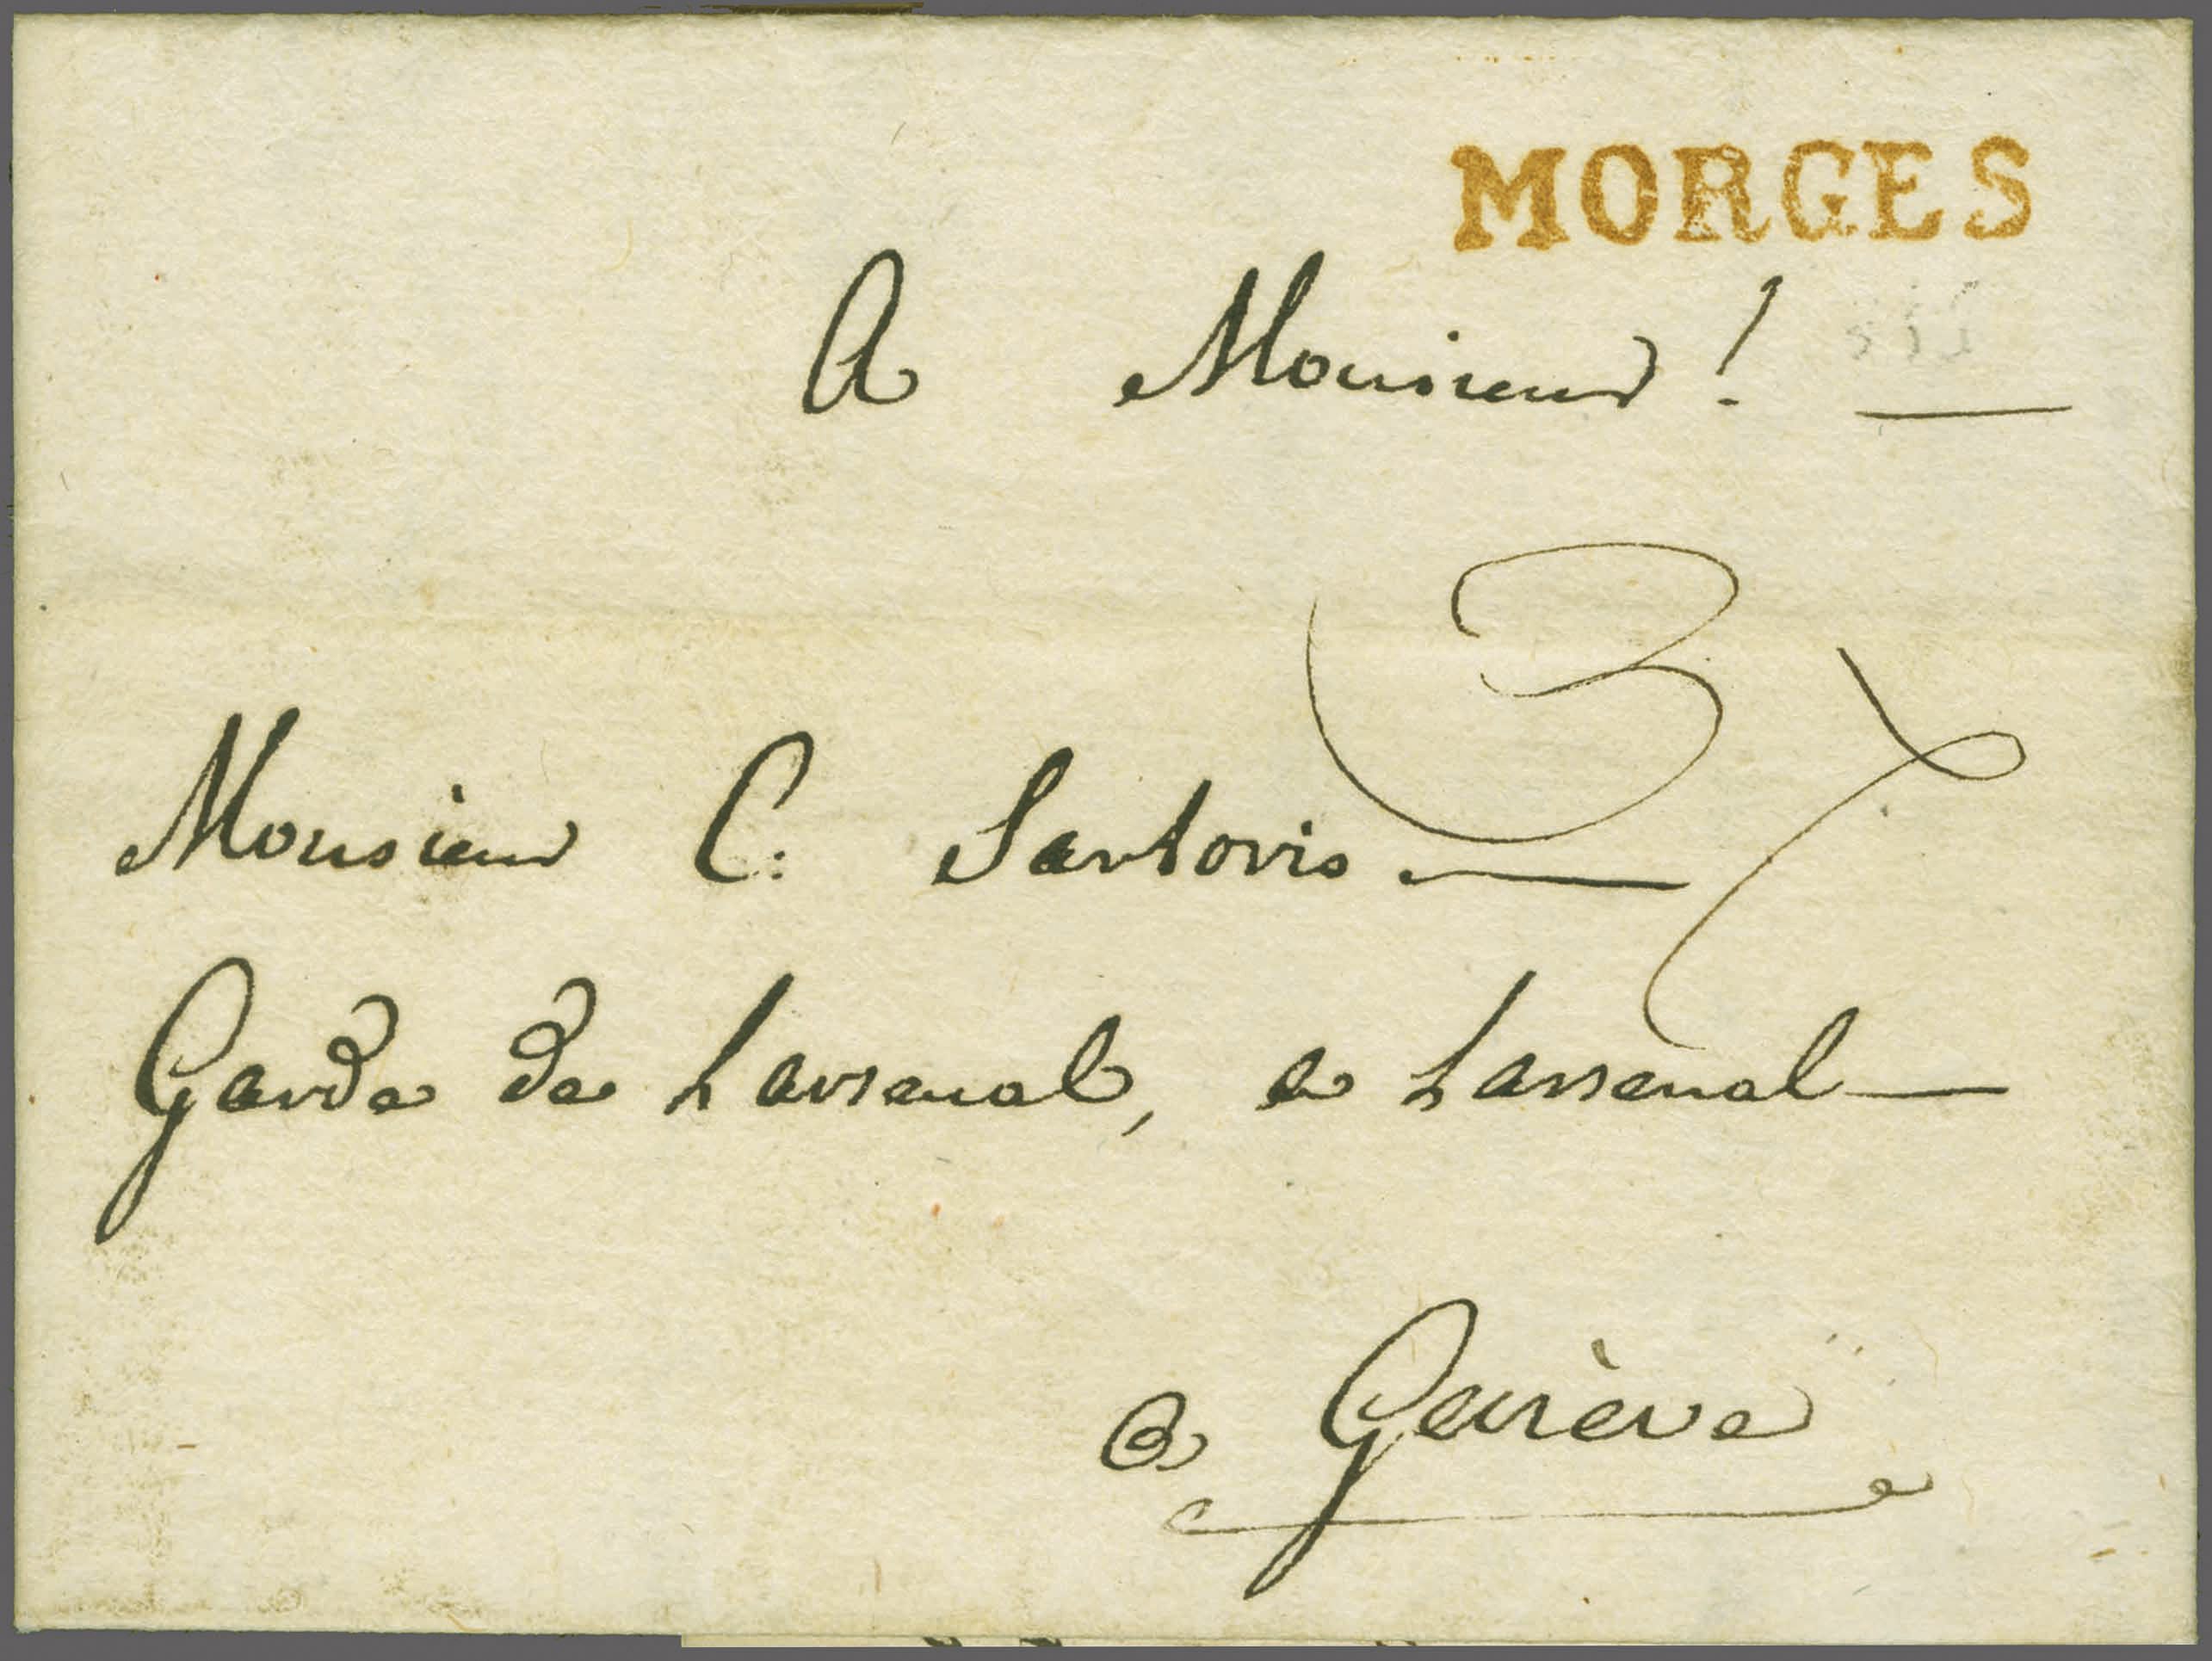 MORGES
A Monsieur !
3
Monsieur C: Sartoris
Garde de Larsenal, a Larsenal
a Genève